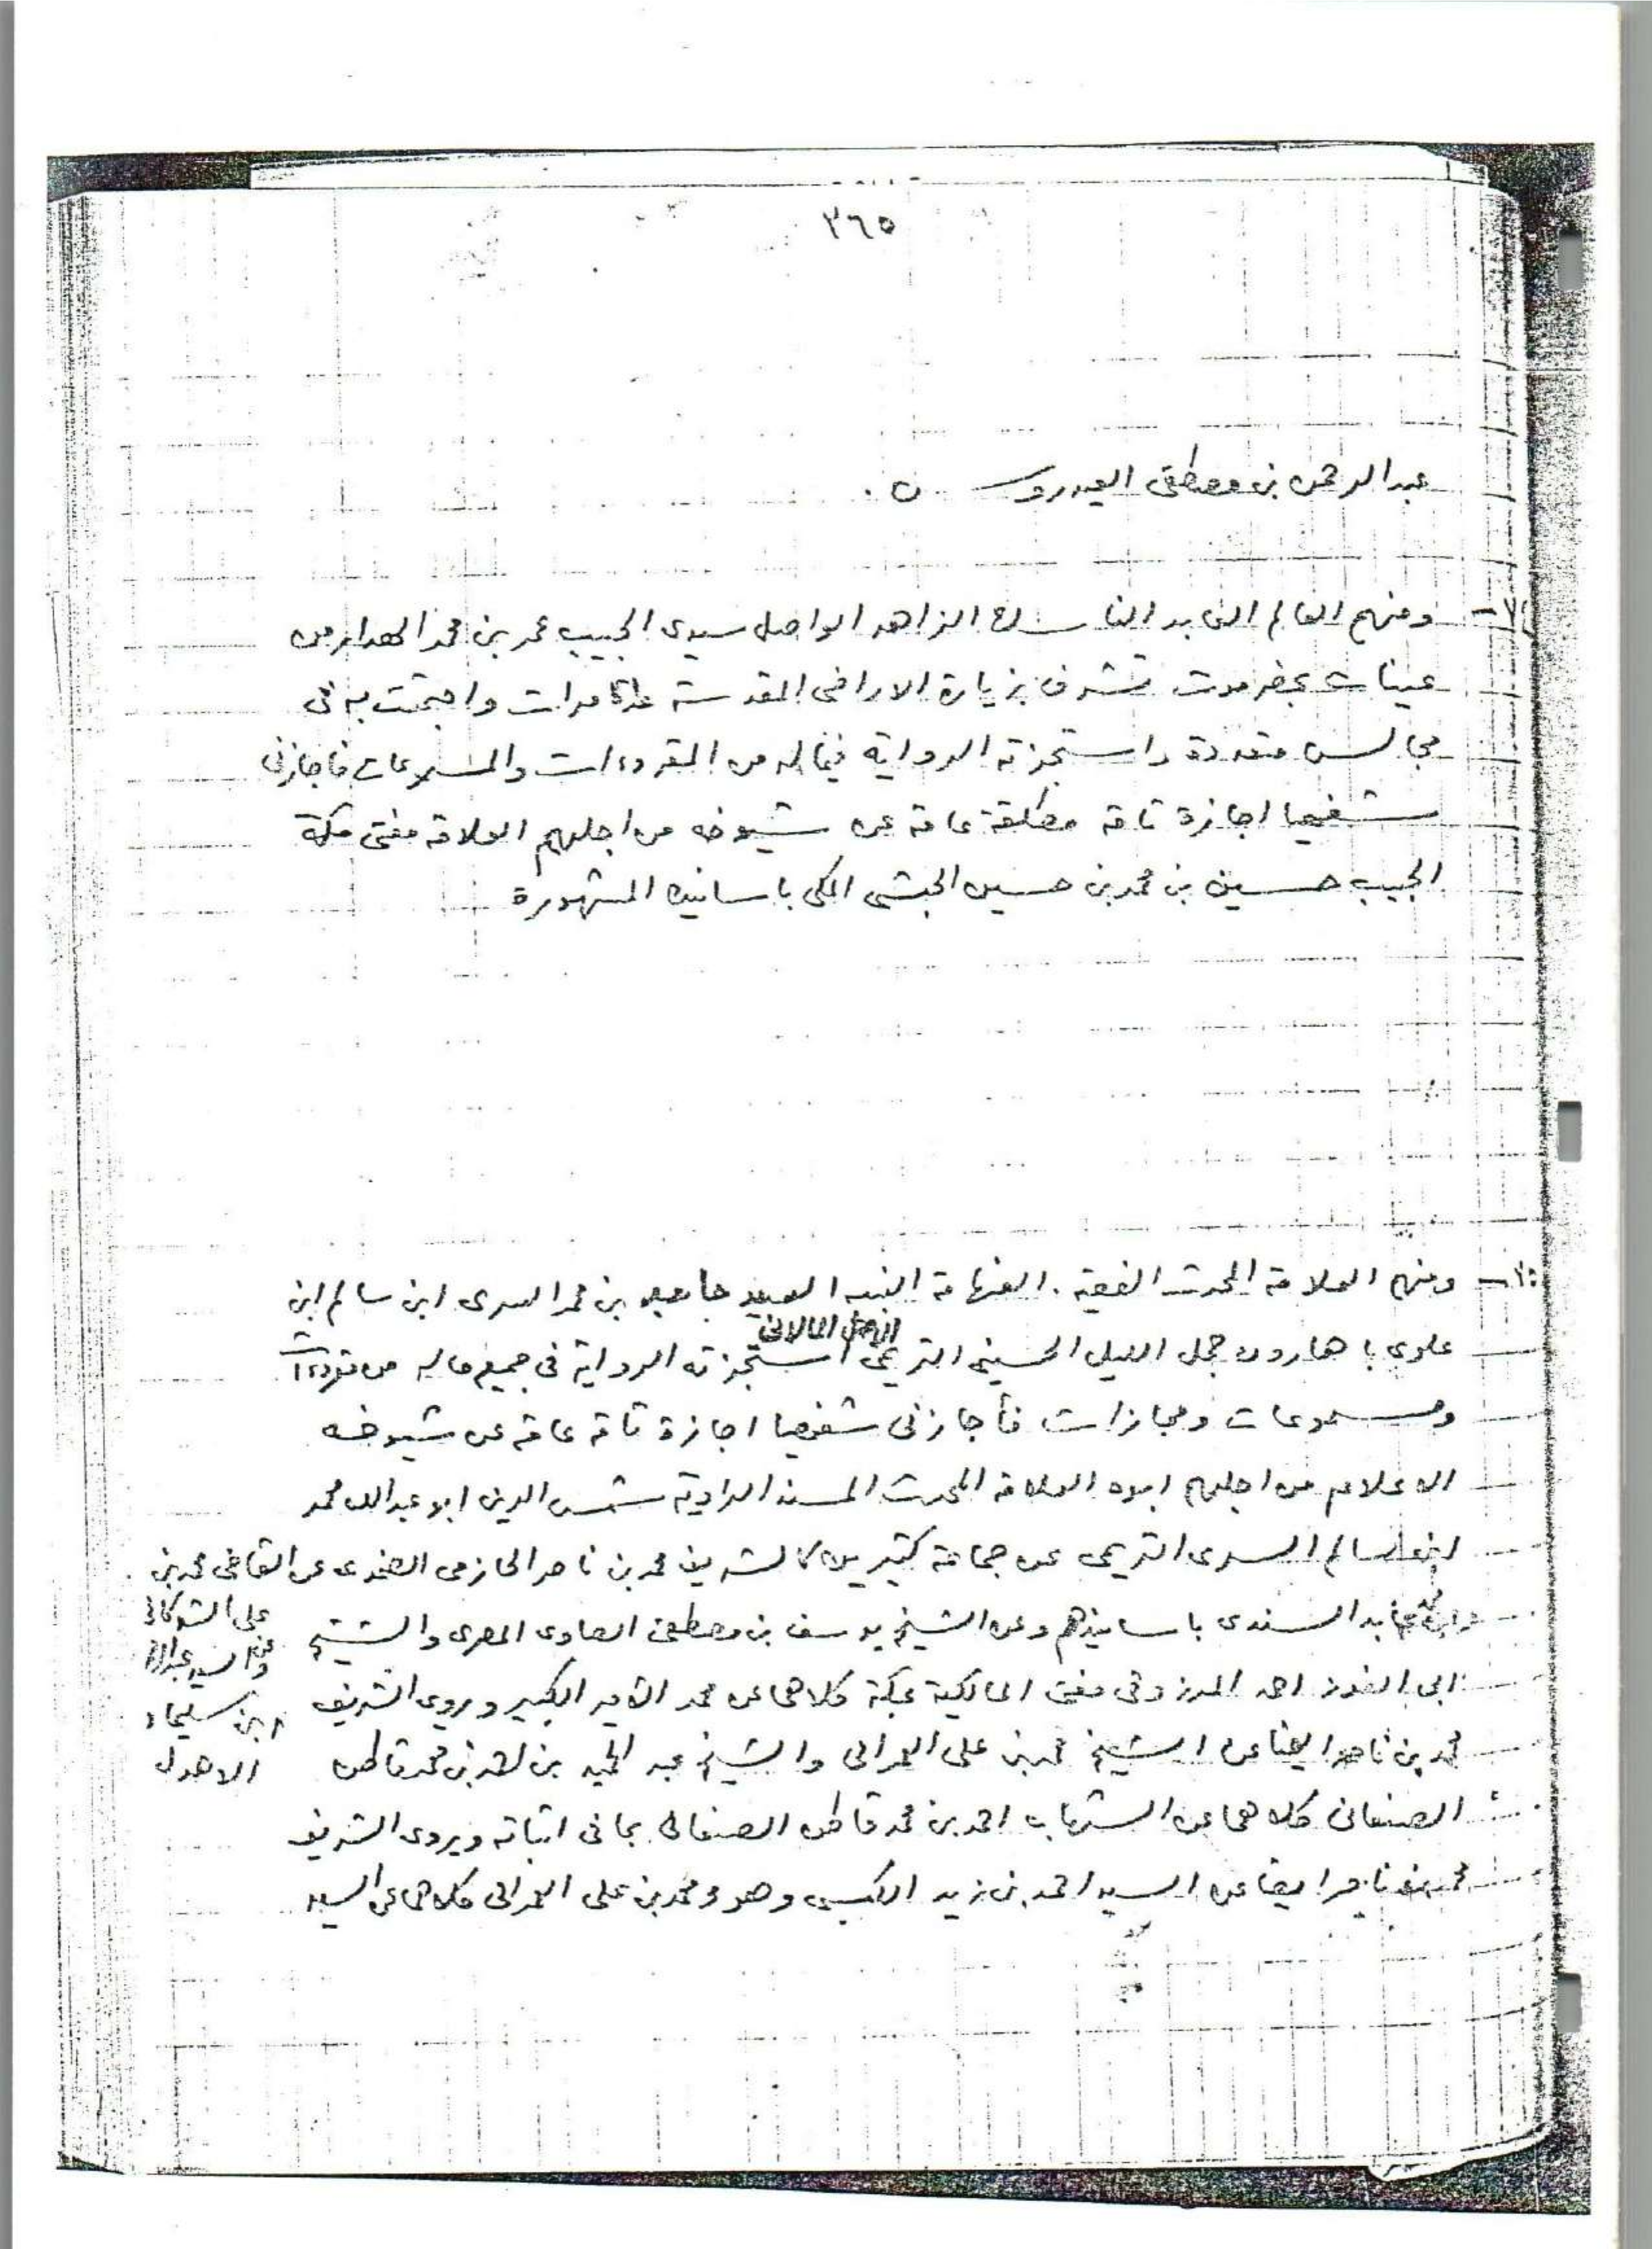 ٣٦٥
عبدالرحمن بن مصطفى العيدروس
ومنهم العالم العابد الناسك الزاهد الواصل سيدى الحبيب عمر بن محمد الهدار من
عينات بحضرموت تشرف بزيارة الاراضى المقدسة مرات واجتمعت به فى
مجالس متعددة واستجزته الرواية فيما له من المقروءات والمسموعات فاجازنى
شفهيا اجازة تامة مطلقة عامة عن شيوخه من اجلهم العلامة مفتى مكة
الحبيب حسين بن محمد بن حسين الحبشى المكى باسانيده المشهورة
ومنهم العلامة المحدث الفقيه الفهامة النبيه السيد بن محمد السرى ابن سالم ابن
الاصل المالانى
علوى باهارون جمل الليل الحسينى التريمى استجزته الرواية فى جميع ماله من مقروءات
ومسموعات ومجازات فأجازنى شفهيا اجازة تامة عامة عن شيوخه
الاعلام من اجلهم ابوه العلامة المحدث المسند الراوية شمس الدين ابو عبدالله محمد
ابن سالم السرى التريمى عن جماعة كثيرين كالشريف محمد بن ناصر الحازمى الضمدى عن القاضى محمد بن
على الشوكانى
وعن السيد عبدالرحمن
ابن سليمان
الاهدل
عابد السندى باسانيدهم وعن الشيخ يوسف بن مصطفى الصاوى المصرى والشيخ
ابى الفوز احمد المرزوقى مفتى المالكية بمكة كلاهما عن محمد الامير الكبير ويروى الشريف
محمد بن ناصر ايضا عن الشيخ محمد بن على العمرانى والشيخ عبد الحميد بن احمد بن محمد قاطن
الصنعانى كلاهما عن الشهاب احمد بن محمد قاطن الصنعانى بما فى اثباته ويروى الشريف
محمد بن ناصر ايضا عن السيد احمد بن زيد الكبسى وهو ومحمد بن على العمرانى كلاهما عن السيد